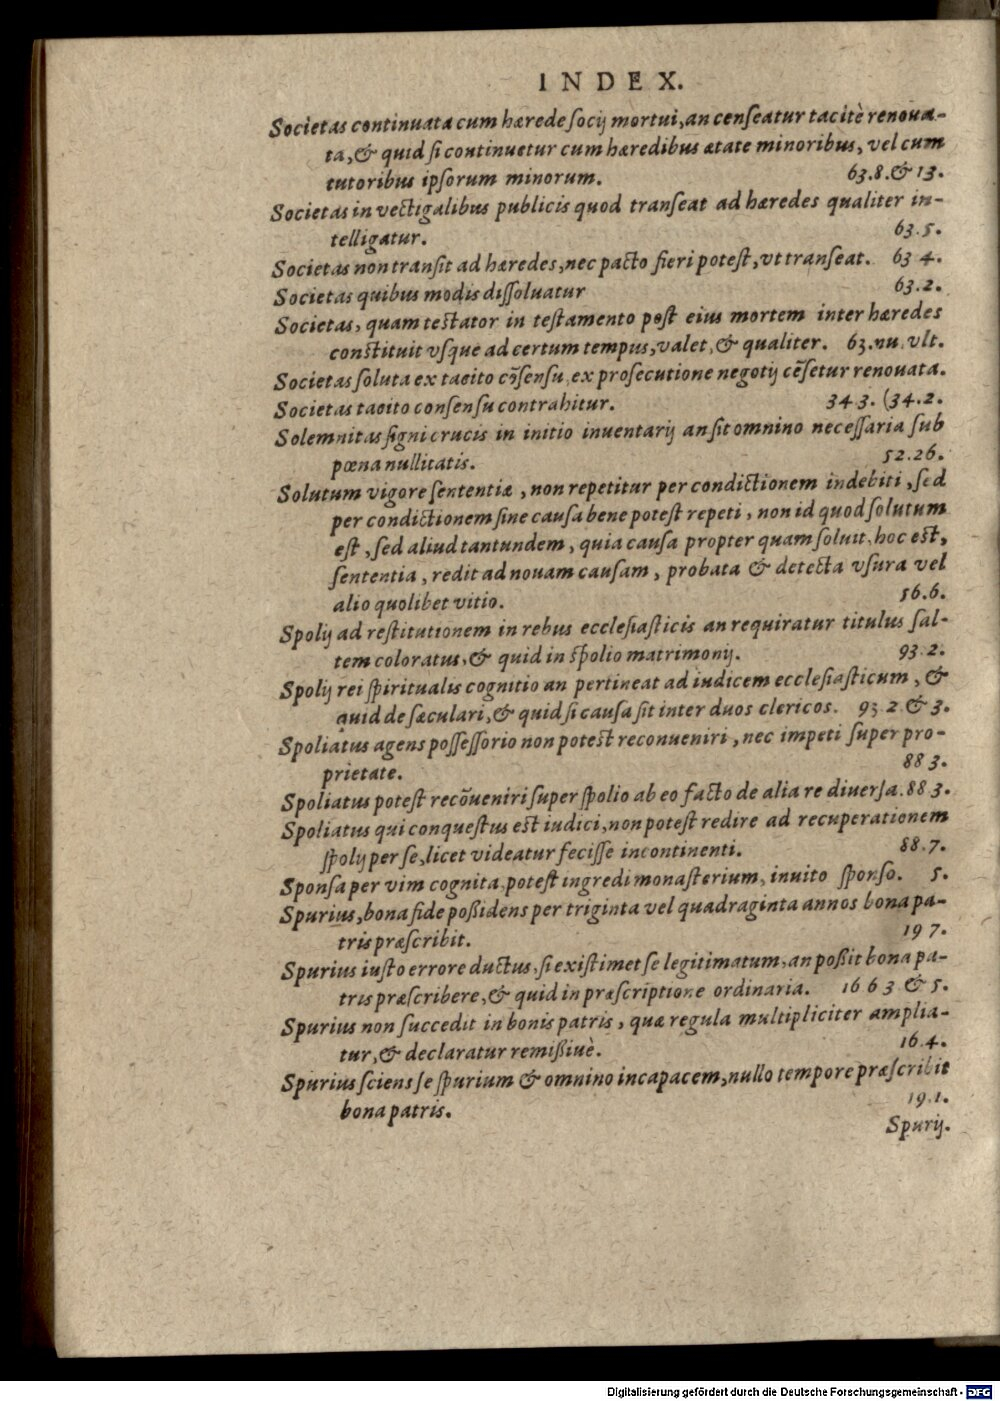 INDEX.
Societas continuata cum hærede ſocij mortui, an cenſeatur tacitè renoua-
ta, & quid ſi continuetur cum hæredibus ætate minoribus, vel cum
tutoribus ipſorum minorum. 63.8.& 13.
Societas in vectigalibus publicis quod tranſeat ad hæredes qualiter in-
telligatur. 63.5.
Societas non tranſit ad hæredes, nec pacto fieri poteſt, vt tranſeat. 63 4.
Societas quibus modis diſſoluatur 63.2.
Societas, quam teſtator in teſtamento poſt eius mortem inter hæredes
conſtituit vſque ad certum tempus, valet, & qualiter. 63.nu.vlt.
Societas ſoluta ex tacito cõſenſu, ex proſecutione negotij cẽſetur renouata.
Societas tacito conſenſu contrahitur. 34 3. (34.2.
Solemnitas ſigni crucis in initio inuentarij an ſit omnino neceſſaria ſub
pœna nullitatis. 52.26.
Solutum vigore ſententiæ, non repetitur per condictionem indebiti, ſed
per condictionem ſine cauſa bene poteſt repeti, non id quod ſolutum
eſt, ſed aliud tantundem, quia cauſa propter quam ſoluit, hoc eſt,
ſententia, redit ad nouam cauſam, probata & detecta vſura vel
alio quolibet vitio. 56.6.
Spolij ad reſtitutionem in rebus eccleſiaſticis an requiratur titulus ſal-
tem coloratus, & quid in ſpolio matrimonij. 93.2.
Spolij rei ſpiritualis cognitio an pertineat ad iudicem eccleſiaſticum, &
quid de ſæculari, & quid ſi cauſa ſit inter duos clericos. 93 2 & 3.
Spoliatus agens poſſeſſorio non poteſt reconueniri, nec impeti ſuper pro-
prietate. 88 3.
Spoliatus poteſt recõueniri ſuper ſpolio ab eo facto de alia re diuerſa. 88 3.
Spoliatus qui conqueſtus eſt iudici, non poteſt redire ad recuperationem
ſpolij per ſe, licet videatur feciſſe incontinenti. 88.7.
Sponſa per vim cognita, poteſt ingredi monaſterium, inuito ſponſo. 5.
Spurius, bona fide poßidens per triginta vel quadraginta annos bona pa-
tris præſcribit. 19 7.
Spurius iuſto errore ductus, ſi exiſtimet ſe legitimatum, an poßit bona pa-
tris præſcribere, & quid in præſcriptione ordinaria. 16 6 3 & 5.
Spurius non ſuccedit in bonis patris, quæ regula multipliciter amplia-
tur, & declaratur remißiuè. 16.4.
Spurius ſciens ſe ſpurium & omnino incapacem, nullo tempore præſcribit
bona patris. 19.1.
Spurij.
Digitalisierung gefördert durch die Deutsche Forschungsgemeinschaft - DFG